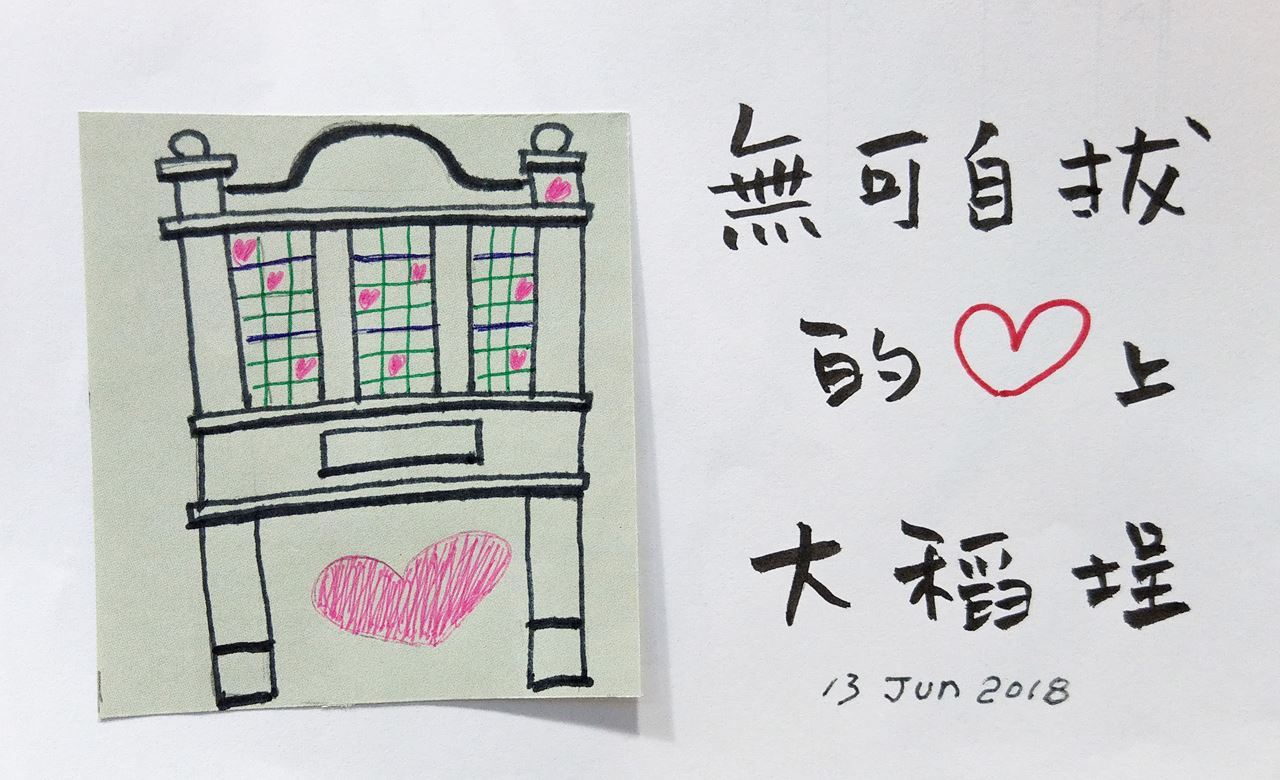 無可自拔
的♡上
大稻埕
13 Jun 2018